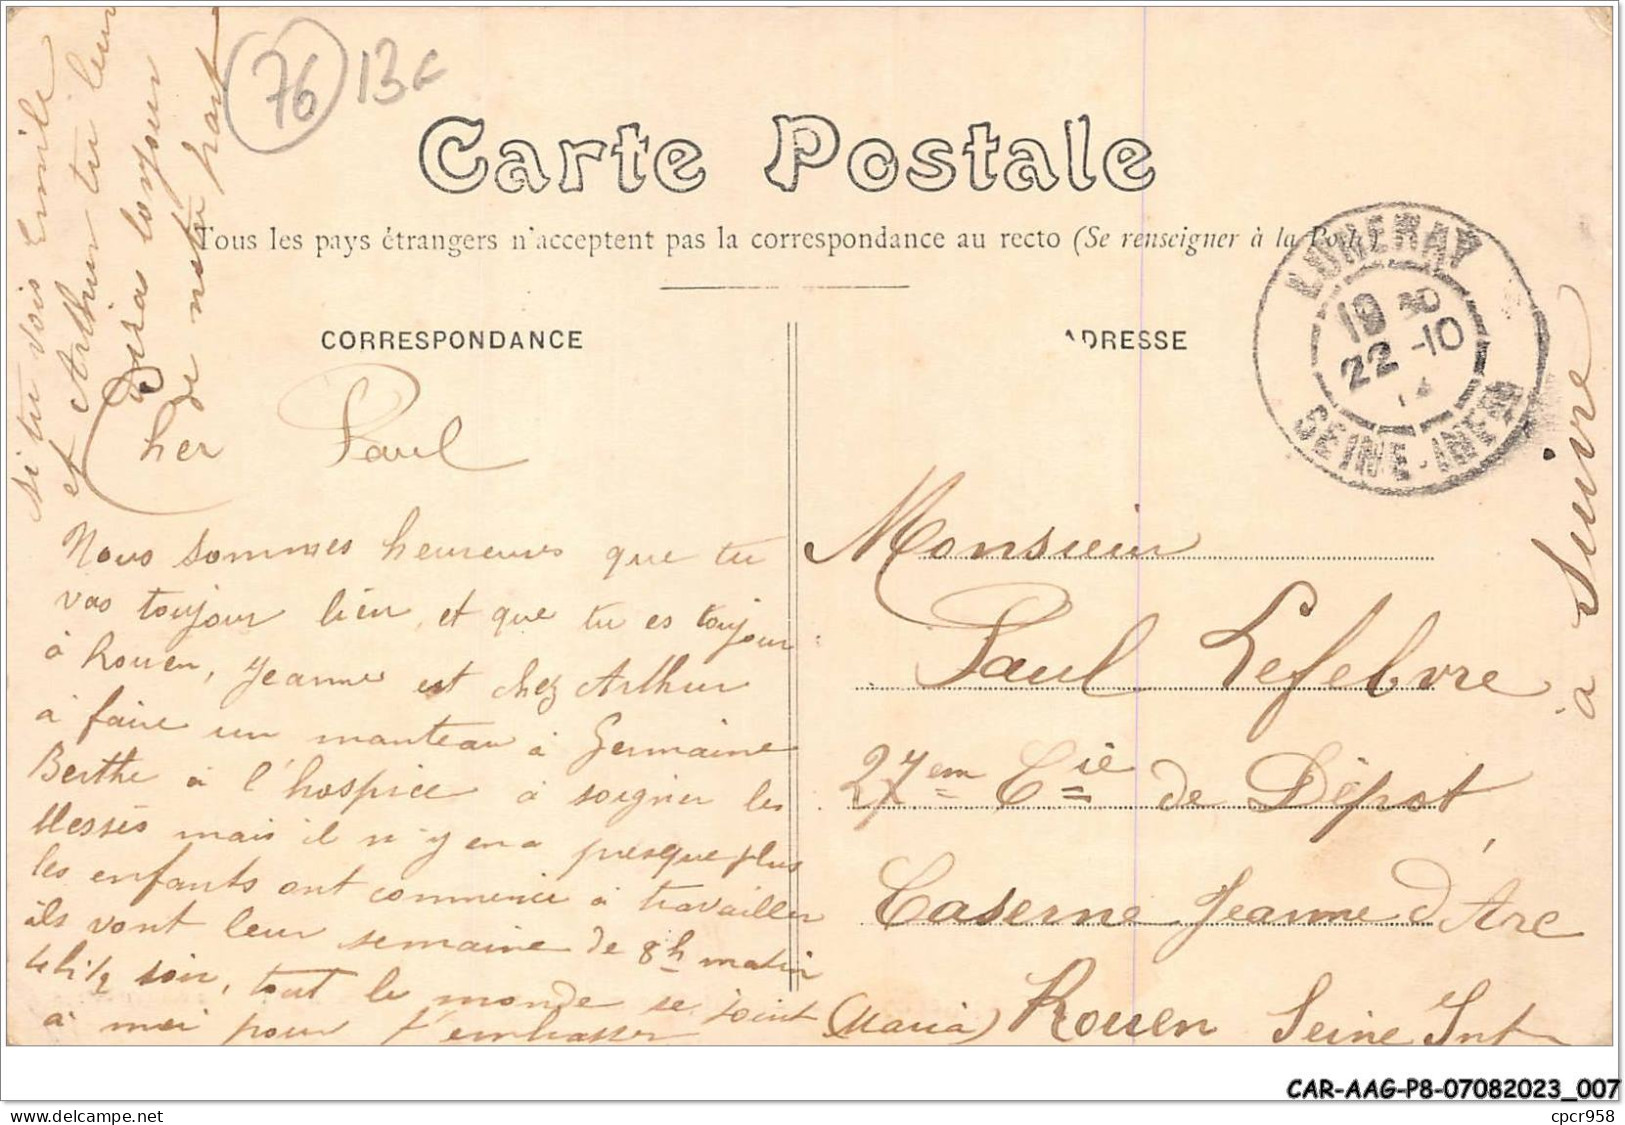 76 13c
Carte Postale
Tous les pays étrangers n'acceptent pas la correspondance au recto (Se renseigner à la Poste)
CORRESPONDANCE
ADRESSE
LUNERAY
19 30
22 -10
SEINE-INFRE
si tu vois Emile
et Arthur tu leur
diras bonjour
de notre part
Cher Paul
Nous sommes heureuses que tu
vas toujour bien, et que tu es toujour
à Rouen, Jeanne est chez Arthur
à faire un manteau à Germaine
Berthe à l'hospice à soigner les
blessés mais il n'y en a presque plus
les enfants ont commencé à travailler
ils vont leur semaine de 8h matin
4h 1/2 soir, tout le monde se joint
à moi pour t'embrasser (Maria)
Monsieur
Paul Lefebvre
27em Cie de Dépot
Caserne Jeanne d'Arc
Rouen Seine Inf
à suivre
CAR-AAG-P8-07082023_007
www.delcampe.net
cpcr958